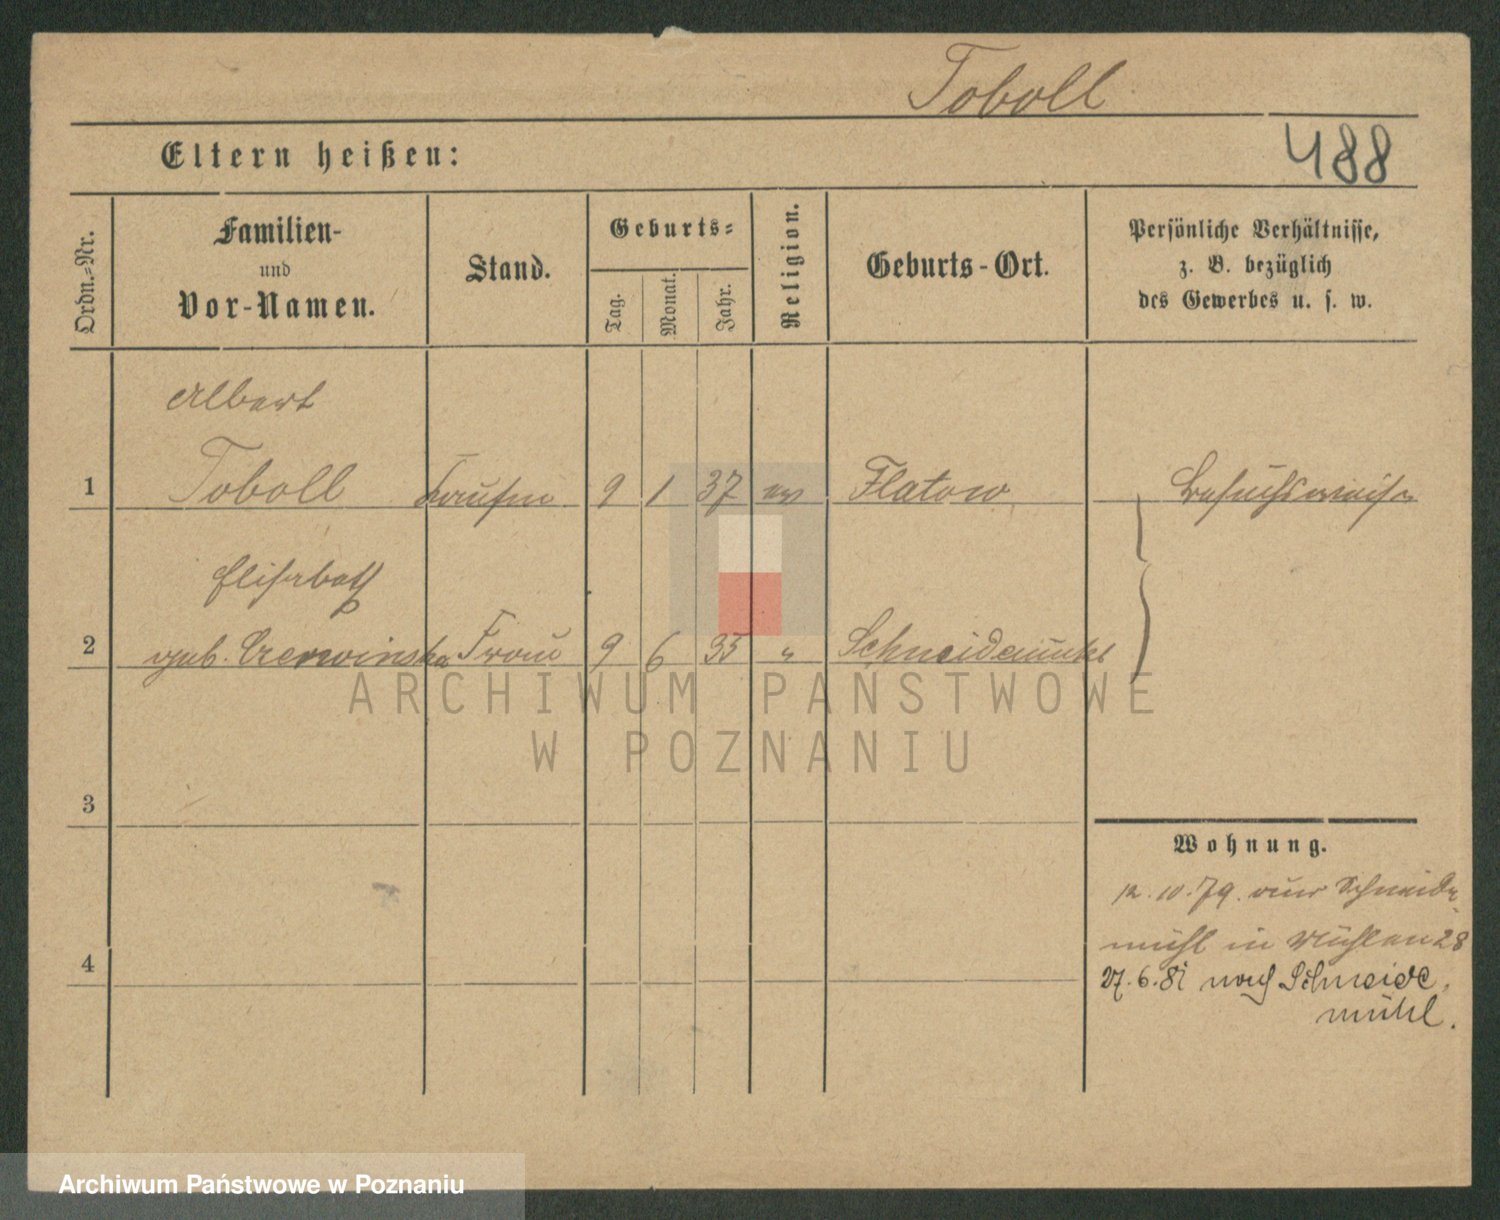 Toboll
488
Eltern heißen:
Ordn.-Nr.
Familien-
und
Vor-Namen.
Stand.
Geburts-
Tag.
Monat.
Jahr.
Religion.
Geburts-Ort.
Persönliche Verhältnisse,
z. B. bezüglich
des Gewerbes u. s. w.
Albert
1 Toboll 9 1 37 ev Flatow
Elisabeth
2 geb. Czerwinska Frau 9 6 35 " Schneidemühl
ARCHIWUM PAŃSTWOWE
W POZNANIU
3
Wohnung.
12.10.79. aus Schneide-
mühl in Mühlen 28
4
27.6.81 nach Schneide-
mühl.
Archiwum Państwowe w Poznaniu